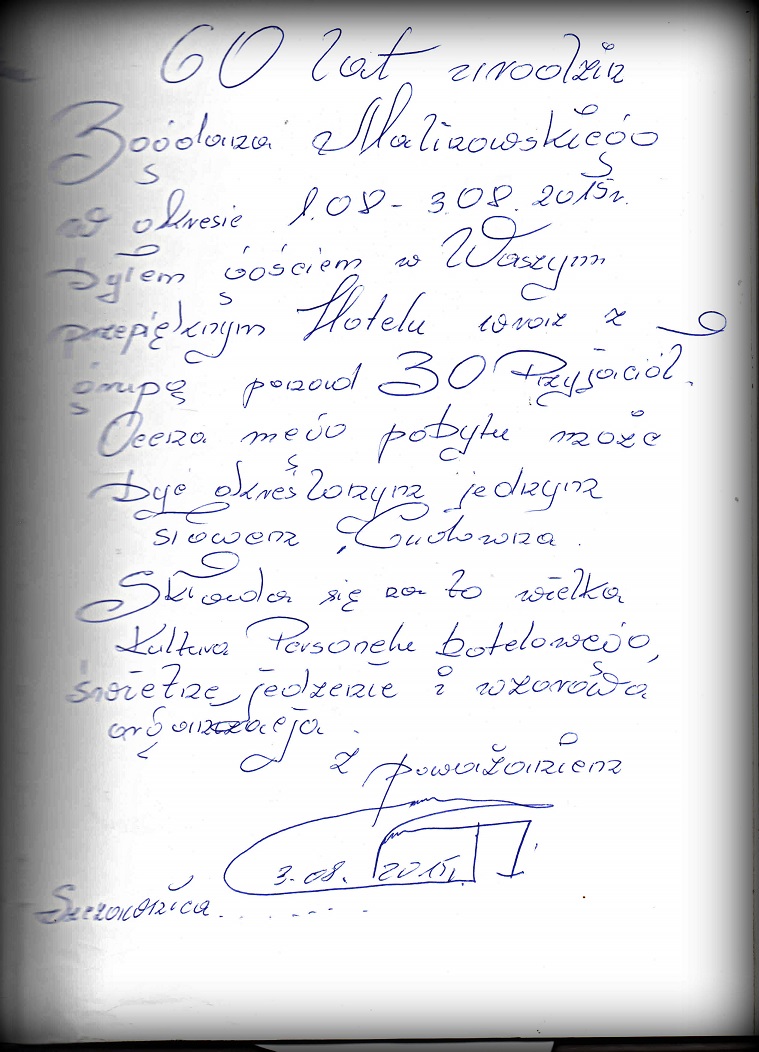 60 lat urodzin
Bogdana Malinowskiego
w okresie 1.08 - 3.08. 2015r.
byłem gościem w Waszym
przepięknym Hotelu wraz z
grupą ponad 30 Przyjaciół.
Ocena mego pobytu może
być określonym jednym
słowem "Cudowna.
Składa się na to wielka
Kultura Personelu hotelowego,
świetne jedzenie i wzorowa
organizacja.
Z poważaniem
3.08. 2015r.
Szczawnica........